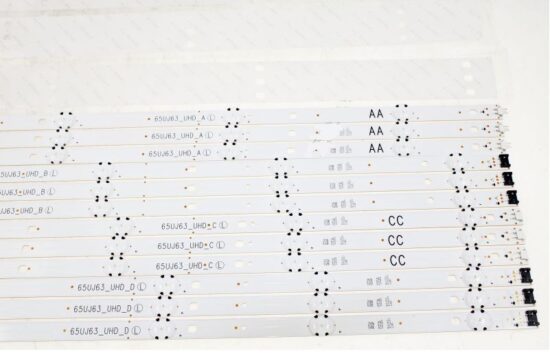 65UJ63_UHD_A Ⓛ AA
65UJ63_UHD_A Ⓛ AA
65UJ63_UHD_A Ⓛ AA
65UJ63_UHD_B Ⓛ
65UJ63_UHD_B Ⓛ
UJ63_UHD_B Ⓛ
65UJ63_UHD_C Ⓛ CC
65UJ63_UHD_C Ⓛ CC
65UJ63_UHD_C Ⓛ CC
65UJ63_UHD_D Ⓛ
65UJ63_UHD_D Ⓛ
65UJ63_UHD_D Ⓛ